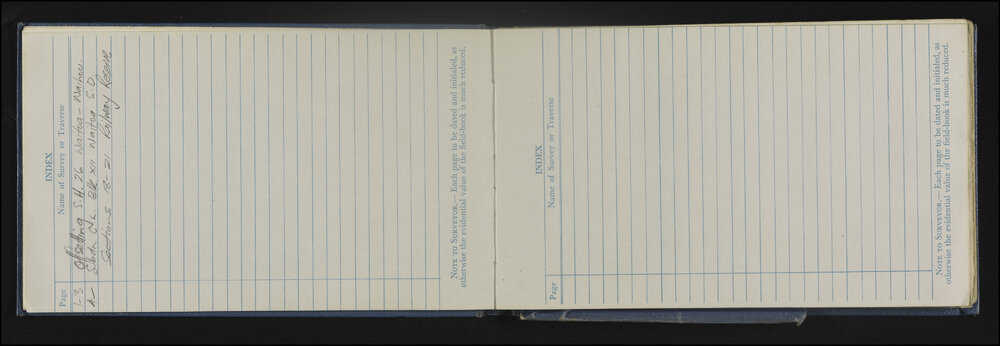 INDEX
Page Name of Survey or Traverse
1-3 Offsetting S.H. 26 Waitoa - Waihou
4- Subdn C/L Blk XII Waitoa S.D.
Sections 18-21 Railway Reserve
NOTE TO SURVEYOR.— Each page to be dated and initialed, as
otherwise the evidential value of the field-book is much reduced.
INDEX
Page Name of Survey or Traverse
NOTE TO SURVEYOR.— Each page to be dated and initialed, as
otherwise the evidential value of the field-book is much reduced.